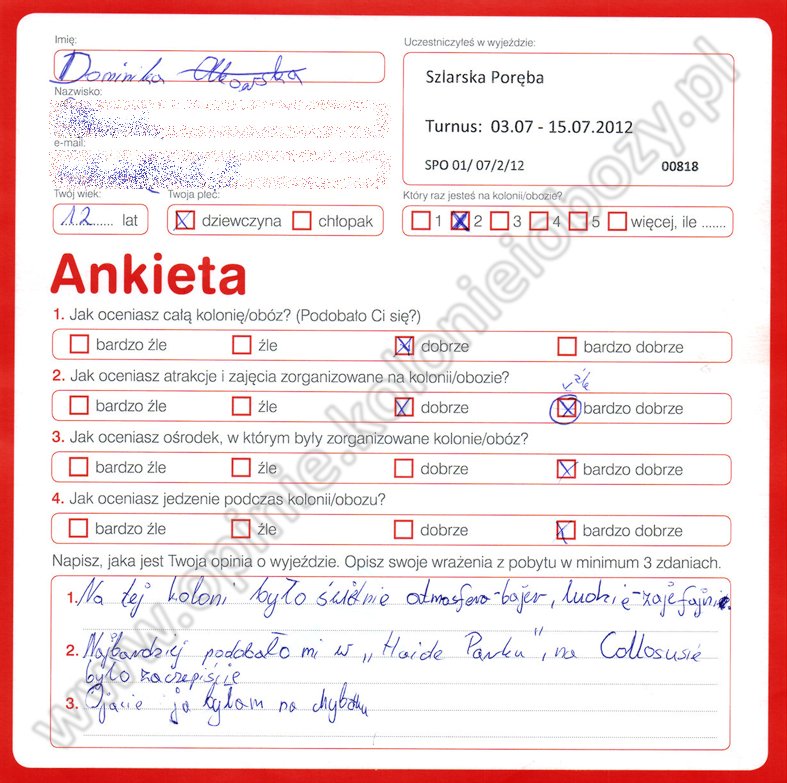 Imię:
Uczestniczyłeś w wyjeździe:
Dominika
Szlarska Poręba
Nazwisko:
Turnus: 03.07 - 15.07.2012
e-mail:
SPO 01/ 07/2/12 00818
Twój wiek: Twoja płeć:
Który raz jesteś na kolonii/obozie?
12 lat dziewczyna chłopak
1 2 3 4 5 więcej, ile .......
Ankieta
1. Jak oceniasz całą kolonię/obóz? (Podobało Ci się?)
bardzo źle źle dobrze bardzo dobrze
2. Jak oceniasz atrakcje i zajęcia zorganizowane na kolonii/obozie?
źle
bardzo źle źle dobrze bardzo dobrze
3. Jak oceniasz ośrodek, w którym były zorganizowane kolonie/obóz?
bardzo źle źle dobrze bardzo dobrze
4. Jak oceniasz jedzenie podczas kolonii/obozu?
bardzo źle źle dobrze bardzo dobrze
Napisz, jaka jest Twoja opinia o wyjeździe. Opisz swoje wrażenia z pobytu w minimum 3 zdaniach.
1. Na tej koloni było świetnie atmosfera-bajer, ludzie-zajefajni.
2. Najbardziej podobało mi w „Haide Parku", na Collosusie
było zaczepiście
3. ja byłam na
www.opinie.kolonieiobozy.pl